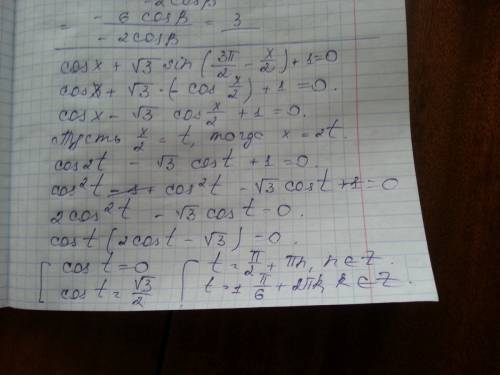 -2cosβ
= - 6 cosβ / - 2cosβ = 3
cosx + √3 sin(3π/2 - x/2) + 1 = 0
cosx + √3 · (- cos x/2) + 1 = 0.
cosx - √3 cos x/2 + 1 = 0.
Пусть x/2 = t, тогда x = 2t.
cos2t - √3 cost + 1 = 0.
cos²t - 1 + cos²t - √3 cost + 1 = 0
2cos²t - √3 cost = 0.
cost(2cost - √3) = 0.
[ cost = 0 [ t = π/2 + πn, n ∈ Z.
cost = √3/2 t = ± π/6 + 2πk, k ∈ Z.